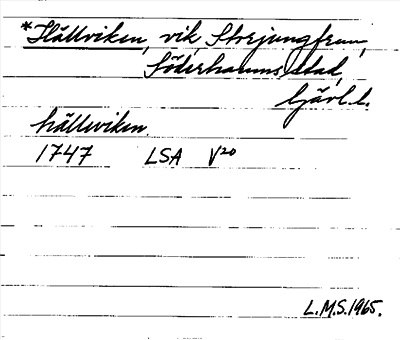 *Hällviken, vik, Storjungfrun,
Söderhamns stad,
Gävl. l.
hällwiken.
1747 LSA V²⁰
L.M.S. 1965.